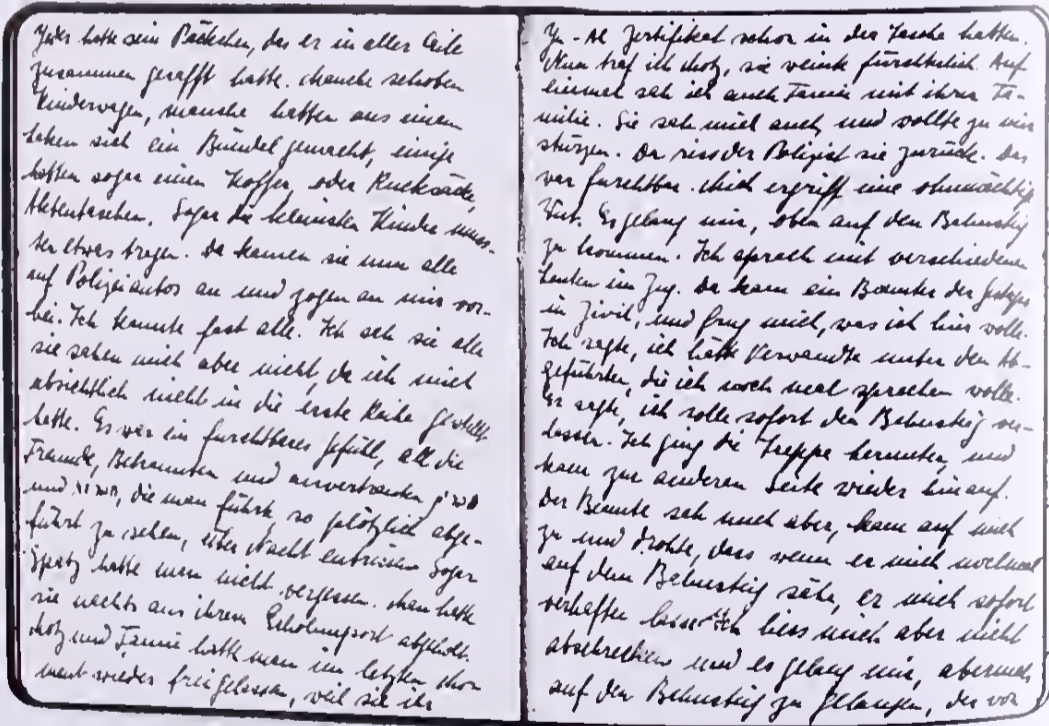 Jeder hatte sein Päckchen, das er in aller Eile
zusammen gerafft hatte. Manche schoben
Kinderwagen, manche hatten aus einem
Laken sich ein Bündel gemacht, einige
hatten sogar einen Koffer, oder Rucksäcke,
Aktentaschen. Sogar die kleinsten Kinder muss-
ten etwas tragen. Da kamen sie nun alle
auf Polizeiautos an und zogen an mir vor-
bei. Ich kannte fast alle. Ich sah sie alle
sie sahen mich aber nicht, da ich mich
absichtlich nicht in die erste Reihe gestellt
hatte. Es war ein furchtbares Gefühl, all die
Freunde, Bekannten und anvertrauten
und die man führte so plötzlich abge-
führt zu sehen, über Nacht entrissen Sogar
Spatz hatte man nicht vergessen. Man hatte
sie nachts aus ihrem Erholungsort abgeholt.
und hatte man im letzten Mo
ment wieder freigelassen, weil sie ihr
Ju-Al Zertifikat schon in der Tasche hatten.
Nun traf ich sie weinte fürchterlich. Auf
einmal sah ich auch mit ihrer Fa-
milie. Sie sah mich auch, und wollte zu mir
stürzen. Da riss der Polizist sie zurück. Das
war furchtbar. Mich ergriff eine ohnmächtige
Wut. Es gelang mir, oben auf den Bahnsteig
zu kommen. Ich sprach mit verschiedenen
Leuten im Zug. Da kam ein Beamter der Gestapo
in Zivil, und frug mich, was ich hier wolle.
Ich sagte, ich hätte Verwandte unter den Ab-
geführten, die ich noch mal sprechen wolle.
Er sagte, ich solle sofort den Bahnsteig ver-
lassen. Ich ging die Treppe herunter, und
kam zur anderen Seite wieder hinauf.
Der Beamte sah mich aber, kam auf mich
zu und drohte, dass wenn er mich nochmal
auf dem Bahnsteig sähe, er mich sofort
verhaften lasse. Ich liess mich aber nicht
abschrecken und es gelang mir, abermals
auf den Bahnsteig zu gelangen, der von